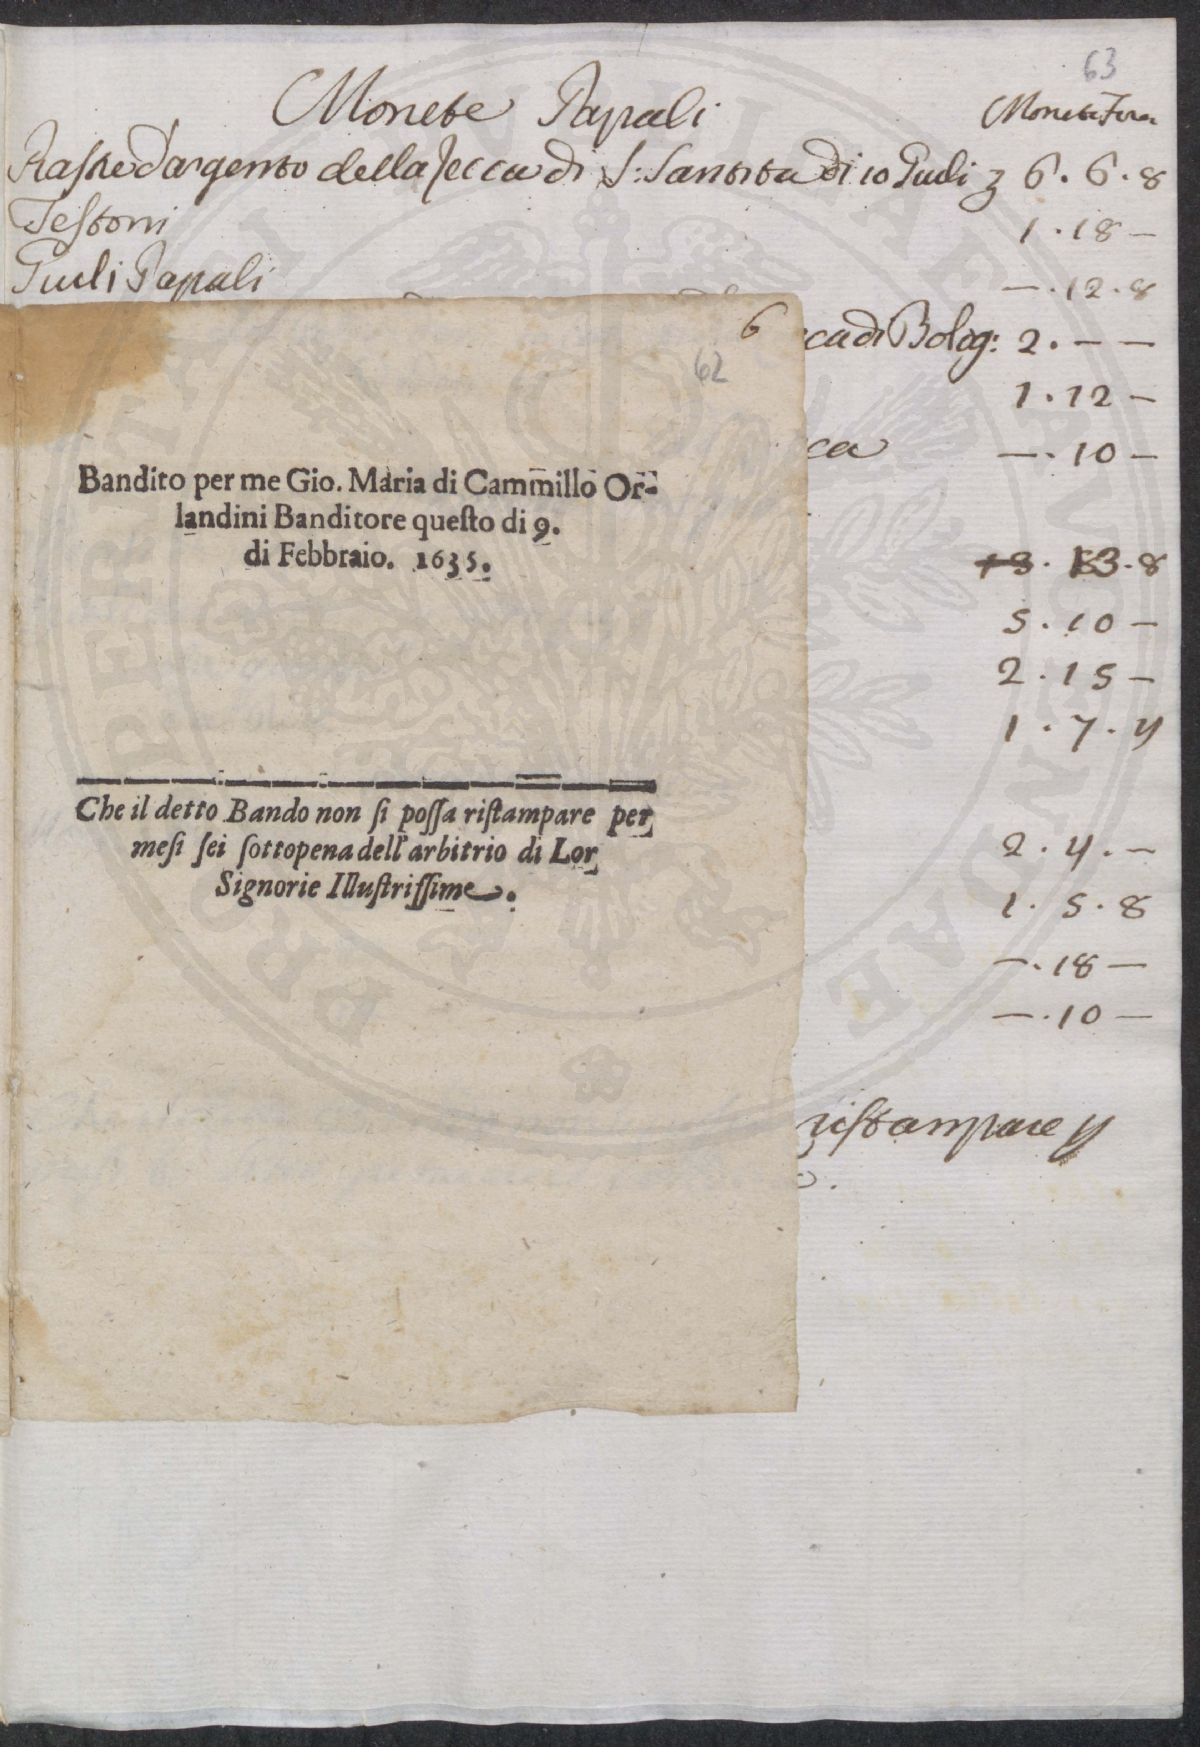 63
Monete Papali
Moneta Fior
Piastre d'argento della Zecca di S: Santita di 10 Giuli 6 . 6 . 8
Testoni 1 . 18 —
Giuli Papali — . 12 . 8
cca di Bolog: 2 . — —
1 . 12 —
cca — . 10 —
13 . 8
5 . 10 —
2 . 15 —
1 . 7 . 4
2 . 4 . —
1 . 5 . 8
— . 18 —
— . 10 —
ristampare p
o.
6
62
Bandito per me Gio. Maria di Cammillo Or-
landini Banditore queſto di 9.
di Febbraio. 1635.
Che il detto Bando non ſi poſſa riſtampare per
meſi ſei ſottopena dell'arbitrio di Lor
Signorie Illuſtriſſime.